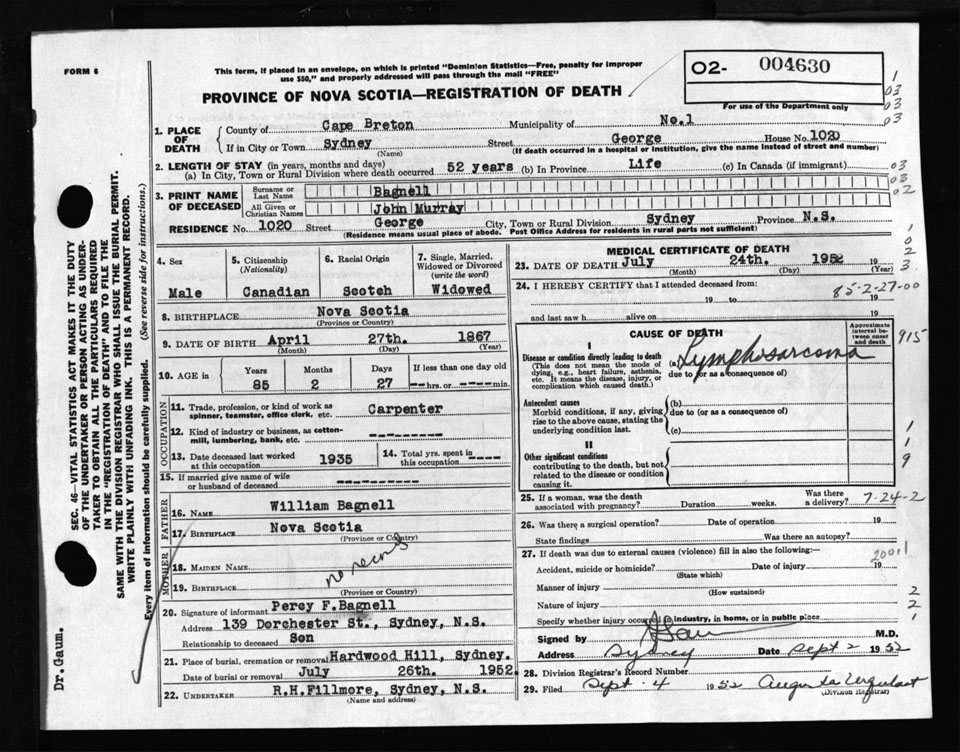 FORM 6
This form, if placed in an envelope, on which is printed "Dominion Statistics—Free, penalty for improper
use $50," and properly addressed will pass through the mail "FREE"
O2- 004630
For use of the Department only
PROVINCE OF NOVA SCOTIA—REGISTRATION OF DEATH
1. PLACE OF DEATH
County of Cape Breton Municipality of No.1
If in City or Town Sydney Street George House No. 1020
(Name) (If death occurred in a hospital or institution, give the name instead of street and number)
2. LENGTH OF STAY (in years, months and days)
(a) In City, Town or Rural Division where death occurred 52 years (b) In Province Life (c) In Canada (if immigrant)
3. PRINT NAME OF DECEASED
Surname or Last Name Bagnell
All Given or Christian Names John Murray
RESIDENCE No. 1020 Street George City, Town or Rural Division Sydney Province N.S.
(Residence means usual place of abode. Post Office Address for residents in rural parts not sufficient)
4. Sex 5. Citizenship (Nationality) 6. Racial Origin 7. Single, Married, Widowed or Divorced (write the word)
Male Canadian Scotch Widowed
8. BIRTHPLACE Nova Scotia
(Province or Country)
9. DATE OF BIRTH April 27th. 1867
(Month) (Day) (Year)
10. AGE in Years Months Days If less than one day old
85 2 27 ---hrs. or ----min.
OCCUPATION
11. Trade, profession, or kind of work as spinner, teamster, office clerk, etc. Carpenter
12. Kind of industry or business, as cotton-mill, lumbering, bank, etc. ---------
13. Date deceased last worked at this occupation 1935 14. Total yrs. spent in this occupation ----
15. If married give name of wife or husband of deceased ----------
FATHER
16. NAME William Bagnell
17. BIRTHPLACE Nova Scotia
(Province or Country)
MOTHER
18. MAIDEN NAME
no record
19. BIRTHPLACE
(Province or Country)
20. Signature of informant Percy F.Bagnell
Address 139 Dorchester St., Sydney, N.S.
Relationship to deceased Son
21. Place of burial, cremation or removal Hardwood Hill, Sydney.
Date of burial or removal July 26th. 1952.
22. UNDERTAKER R.H.Fillmore, Sydney, N.S.
(Name and address)
MEDICAL CERTIFICATE OF DEATH
23. DATE OF DEATH July 24th. 1952 19
(Month) (Day) (Year)
24. I HEREBY CERTIFY that I attended deceased from:
85-2-27-00
19 to 19
and last saw h alive on 19
CAUSE OF DEATH
Approximate interval between onset and death
I
Disease or condition directly leading to death
(This does not mean the mode of dying, e.g., heart failure, asthenia, etc. It means the disease, injury, or complication which caused death.)
(a) Lymphosarcoma
915
due to (or as a consequence of)
Antecedent causes
Morbid conditions, if any, giving rise to the above cause, stating the underlying condition last.
(b)
due to (or as a consequence of)
(c)
II
Other significant conditions
contributing to the death, but not related to the disease or condition causing it.
25. If a woman, was the death associated with pregnancy? Duration weeks. Was there a delivery?
7-24-2
26. Was there a surgical operation? Date of operation 19
State findings Was there an autopsy?
27. If death was due to external causes (violence) fill in also the following:—
20011
Accident, suicide or homicide? Date of injury 19
(State which)
Manner of injury
(How sustained)
Nature of injury
Specify whether injury occurred in industry, in home, or in public place
Signed by M.D.
Address Sydney Date Sept 2 1952
28. Division Registrar's Record Number
29. Filed Sept. 4 1952 Augusta Urquhart
(Division Registrar)
SEC. 46—VITAL STATISTICS ACT MAKES IT THE DUTY
OF THE UNDERTAKER OR PERSON ACTING AS UNDER-
TAKER TO OBTAIN ALL THE PARTICULARS REQUIRED
IN THE "REGISTRATION OF DEATH" AND TO FILE THE
SAME WITH THE DIVISION REGISTRAR WHO SHALL ISSUE THE BURIAL PERMIT.
WRITE PLAINLY WITH UNFADING INK. THIS IS A PERMANENT RECORD.
Every item of information should be carefully supplied. (See reverse side for instructions.)
Dr.Gaum.
1
03
03
03
03
03
02
1
0
2
3
1
1
9
2
2
1